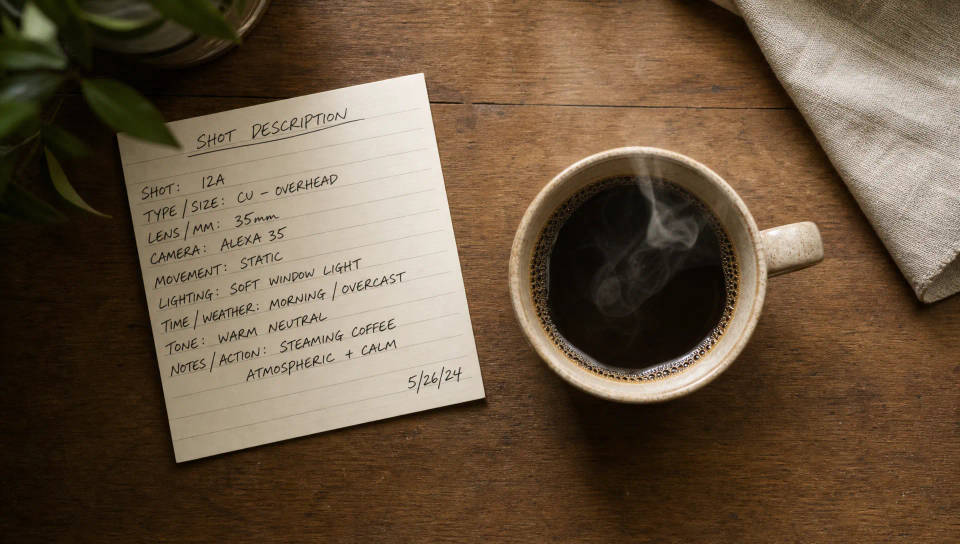 SHOT DESCRIPTION
SHOT: 12A
TYPE/SIZE: CU - OVERHEAD
LENS/MM: 35mm
CAMERA: ALEXA 35
MOVEMENT: STATIC
LIGHTING: SOFT WINDOW LIGHT
TIME/WEATHER: MORNING/OVERCAST
TONE: WARM NEUTRAL
NOTES/ACTION: STEAMING COFFEE
ATMOSPHERIC + CALM
5/26/24